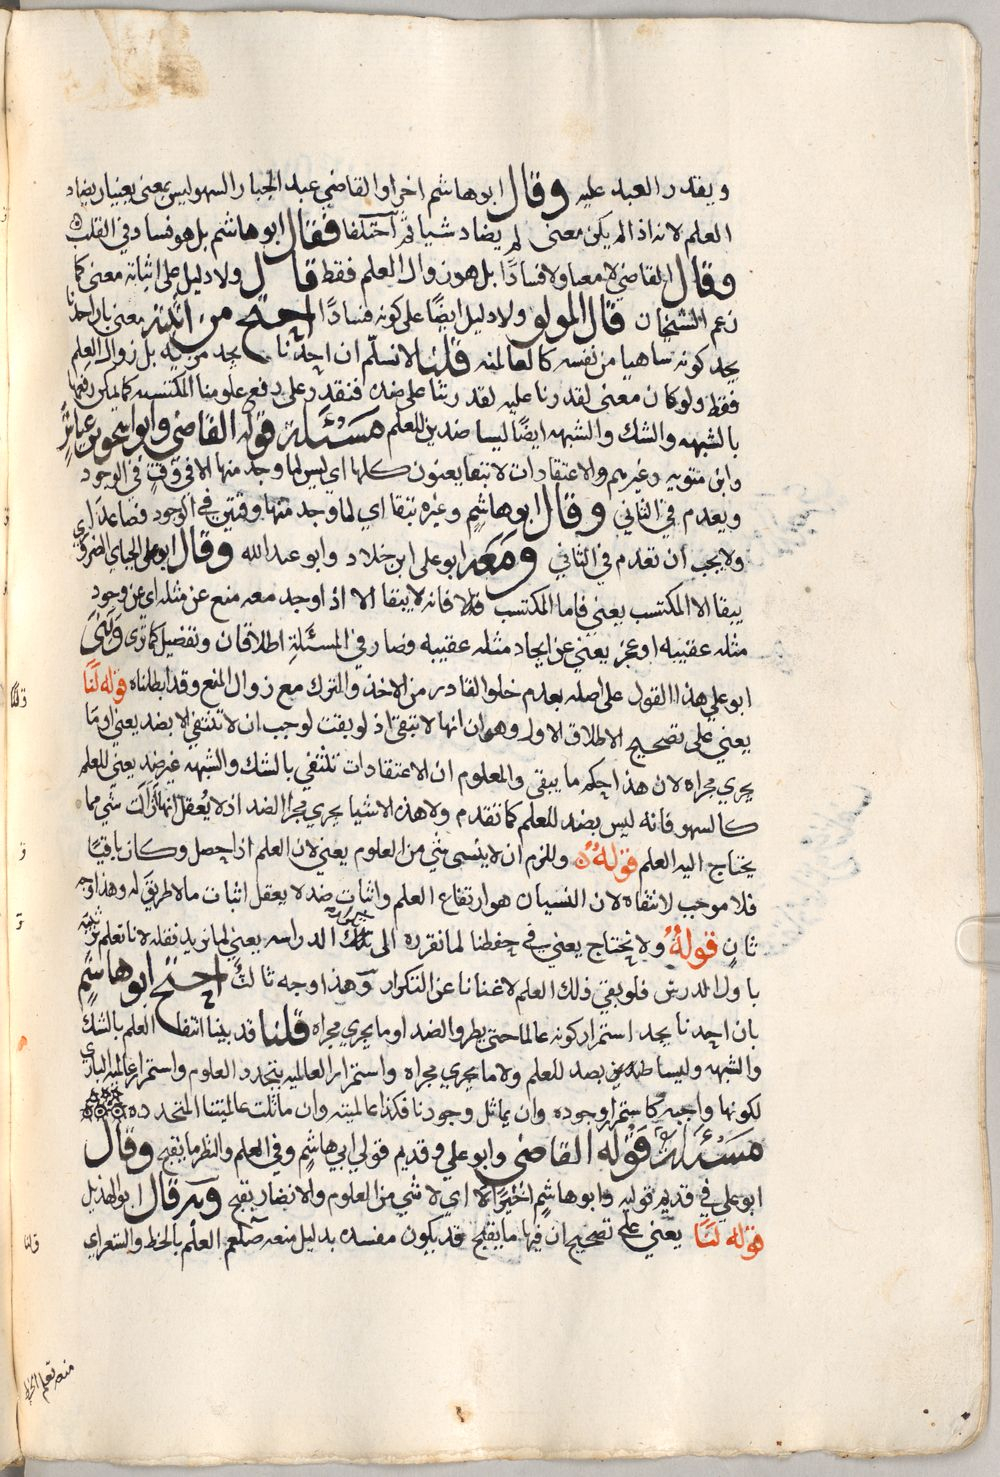 ويقدر العبد عليه وقال ابو هاشم اخرا والقاضي عبد الجبار السهو ليس بمعنى يعنيان يضاد
العلم لانه اذا لم يكن معنى لم يضاد شيا ثم اختلفا فقال ابو هاشم بل هو فساد في القلب
وقال القاضي لا معنا ولا فسادًا بل هو زوال العلم فقط قال ولا دليل على اثباته معنى كما
زعم الشيخان قال المولى ولا دليل ايضًا على كونه فسادًا احتج من اثبته معنى بان احدنا
يجد كونه ساهيا من نفسه كالعالمية قلنا لا نسلم ان احدنا يجد مزية بل زوال العلم
فقط ولو كان معنى لقدرنا عليه لقدرتنا على ضده فنقدر على دفع علومنا المكتسبه كما يمكن رفعها
بالشبهه والشك والشبهه ايضًا ليسا ضدين للعلم مسئلة قوله القاضي وابو اسحق بن عياش
وابن متويه وغيرهم والاعتقادات لا تبقا يعنون كلها اي ليس لما وجد منها الا في وقت في الوجود
ويعدم في الثاني وقال ابو هاشم وغيره تبقا اي لما وجد منها وقتين في الوجود فصاعدا اي
ولا يجب ان تعدم في الثاني ومعه ابو علي ابن خلاد وابو عبد الله وقال ابو علي الجباي الضروري
يبقا الا المكتسب يعني فاما المكتسب فلا فانه لا يبقا الا اذا وجد معه منع عن مثله اي عن وجود
مثله عقيبه او عجز يعني عن ايجاد مثله عقيبه فصار في المسئلة اطلاقان وتفصيل كما ترى وبنى
ابو علي هذا القول على اصله بعدم خلو القادر من الاخذ والترك مع زوال المنع وقد ابطلناه قوله لنا
يعني على تصحيح الاطلاق الاول وهو ان انها لا تبقى اذ لو بقت لوجب ان لا تنتفي الا بضد يعني او ما
يجري مجراه لان هذا حكم ما يبقى والمعلوم ان الاعتقادات تنتفي بالشك والشبهه غير ضد يعني للعلم
كالسهو فانه ليس بضد للعلم كما تقدم ولا هذه الاشيا يجري مجرا الضد اذ لا يعقل انها ازالت شي مما
يحتاج اليه العلم قوله وللزم ان لا ينسى شي من العلوم يعني لان العلم اذا حصل وكان باقيًا
فلا موجب لانتفاه لان النسيان هو ارتفاع العلم واثبات ضد لا يعقل اثبات ما لا طريق له وهذا وجه
ثان قوله ولا يحتاج يعني في حفظنا لما نقرره الى تكرير الدراسه يعني لما نريد نقله لانا نعلم ترتيبه
باول الدرس فلو بقي ذلك العلم لاغنانا عن التكرار وهذا وجه ثالث احتج ابو هاشم
بان احدنا يجد استمرار كونه عالما حتى يطرو الضد او ما يجري مجراه قلنا قد بينا انتفا العلم بالشك
والشبهه وليسا بضد للعلم ولا ما يجري مجراه واستمرار العالميه بتجدد العلوم واستمرار عالميه الباري
لكونها واجبه كاستمرار وجوده وان يماثل وجودنا فكذا عالميته وان ماثلت عالميتنا المتجدده
مسئلة قوله القاضي وابو علي وقديم قولي ابي هاشم وفي العلم والنظر ما يقبح وقال
ابو علي في قديم قوليه وابو هاشم اخيرًا لا اي لا شي من العلوم والانظار يقبح وبه قال ابو الهذيل
قوله لنا يعني على تصحيح ان فيها ما يقبح قد يكون مفسده بدليل منعه صلعم العلم بالخط والشعر اي
منعه تعلم الخط
قلنا